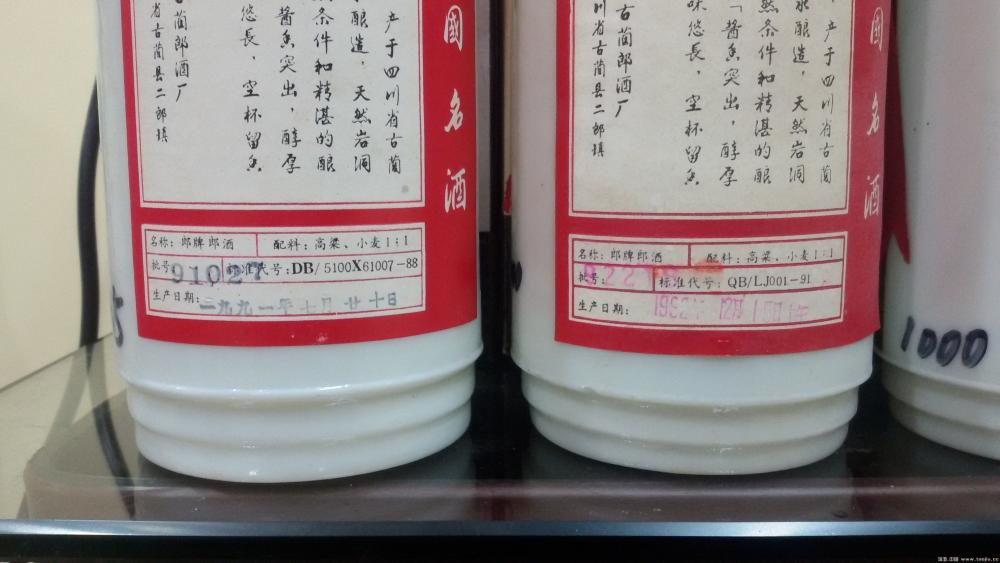 國名酒
产于四川省古蔺
酿造,天然岩洞
然条件和精湛的酿
「酱香突出,醇厚
悠長,空杯留香
古蔺郎酒厂
省古蔺县二郎镇
名称:郎牌郎酒 配料:高粱、小麦1:1
批号:91027 标准代号:DB/5100X61007-88
生产日期:一九九一年七月廿十日
國名酒
产于四川省古蔺
酿造,天然岩洞
然条件和精湛的酿
「酱香突出,醇厚
味悠長,空杯留香
古蔺郎酒厂
川省古蔺县二郎镇
名称:郎牌郎酒 配料:高粱、小麦1:1
批号: 标准代号:QB/LJ001-91
生产日期:
1000